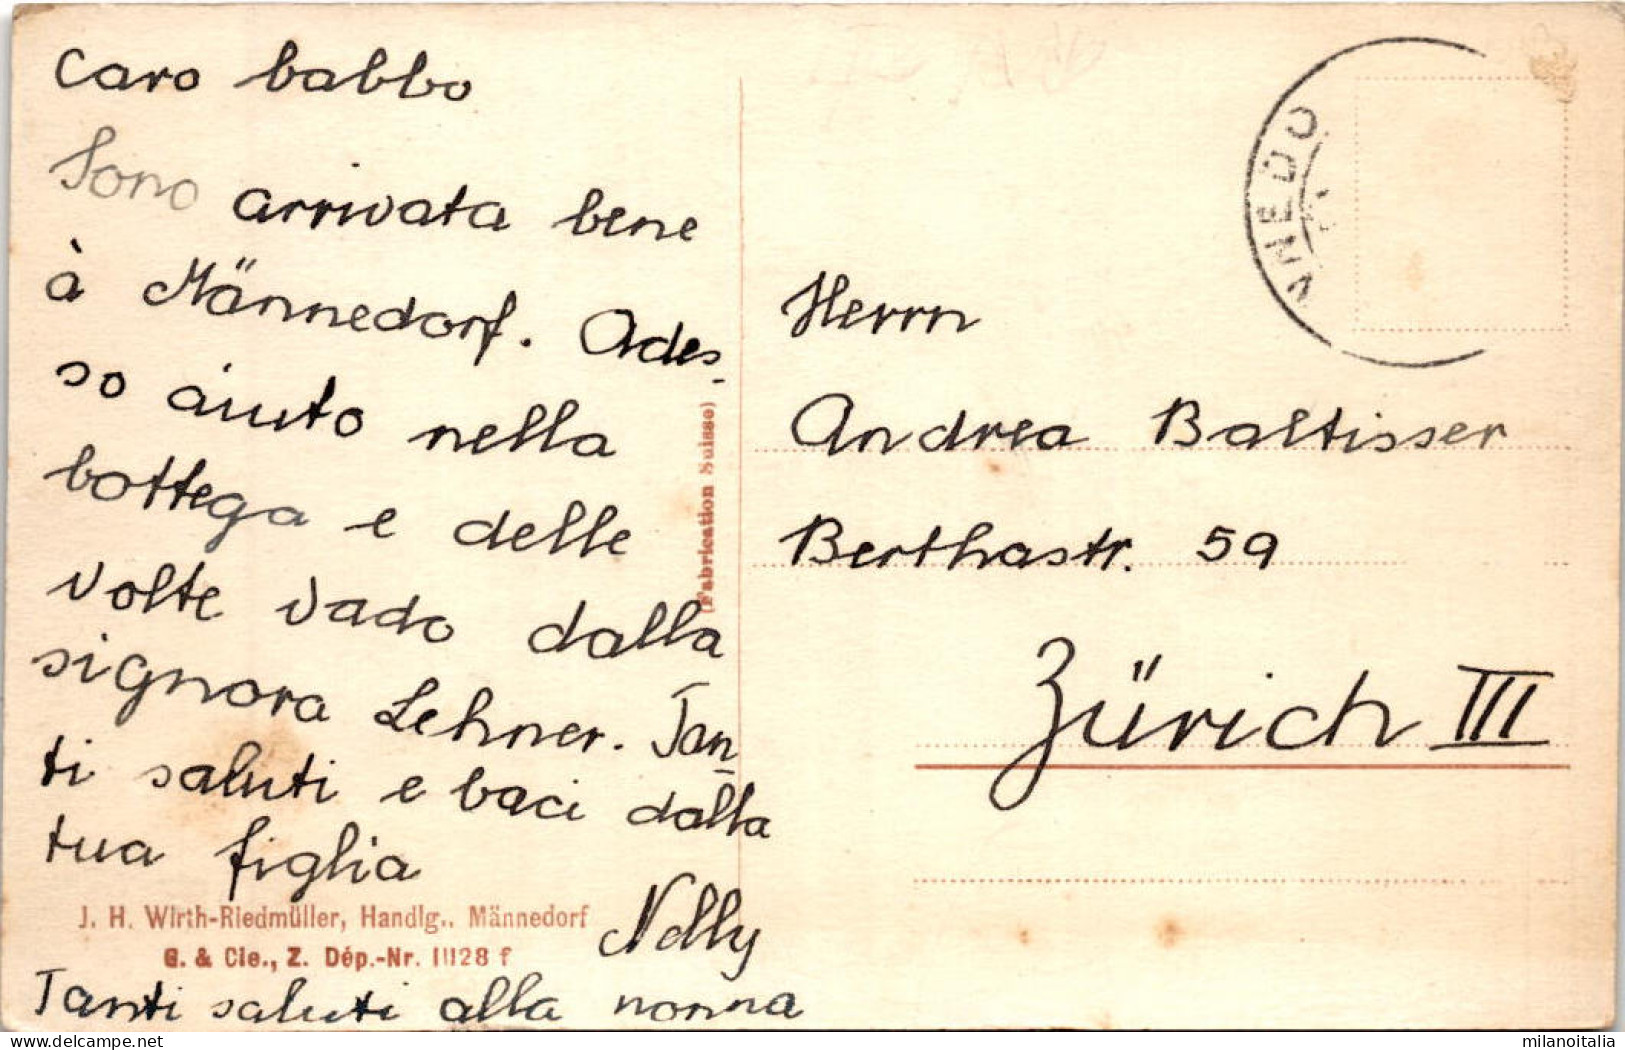 Caro babbo
Sono arrivata bene
à Männedorf. Ades-
so aiuto nella
bottega e delle
volte vado dalla
signora Lehner. Tan-
ti saluti e baci dalla
tua figlia
Nelly
Tanti saluti alla nonna
J. H. Wirth-Riedmüller, Handlg., Männedorf
G. & Cie., Z. Dép.-Nr. 11128 f
(Fabrication Suisse)
NNEDO
Herrn
Andrea Baltisser
Berthastr. 59
Zürich III
delcampe.net
milanoitalia